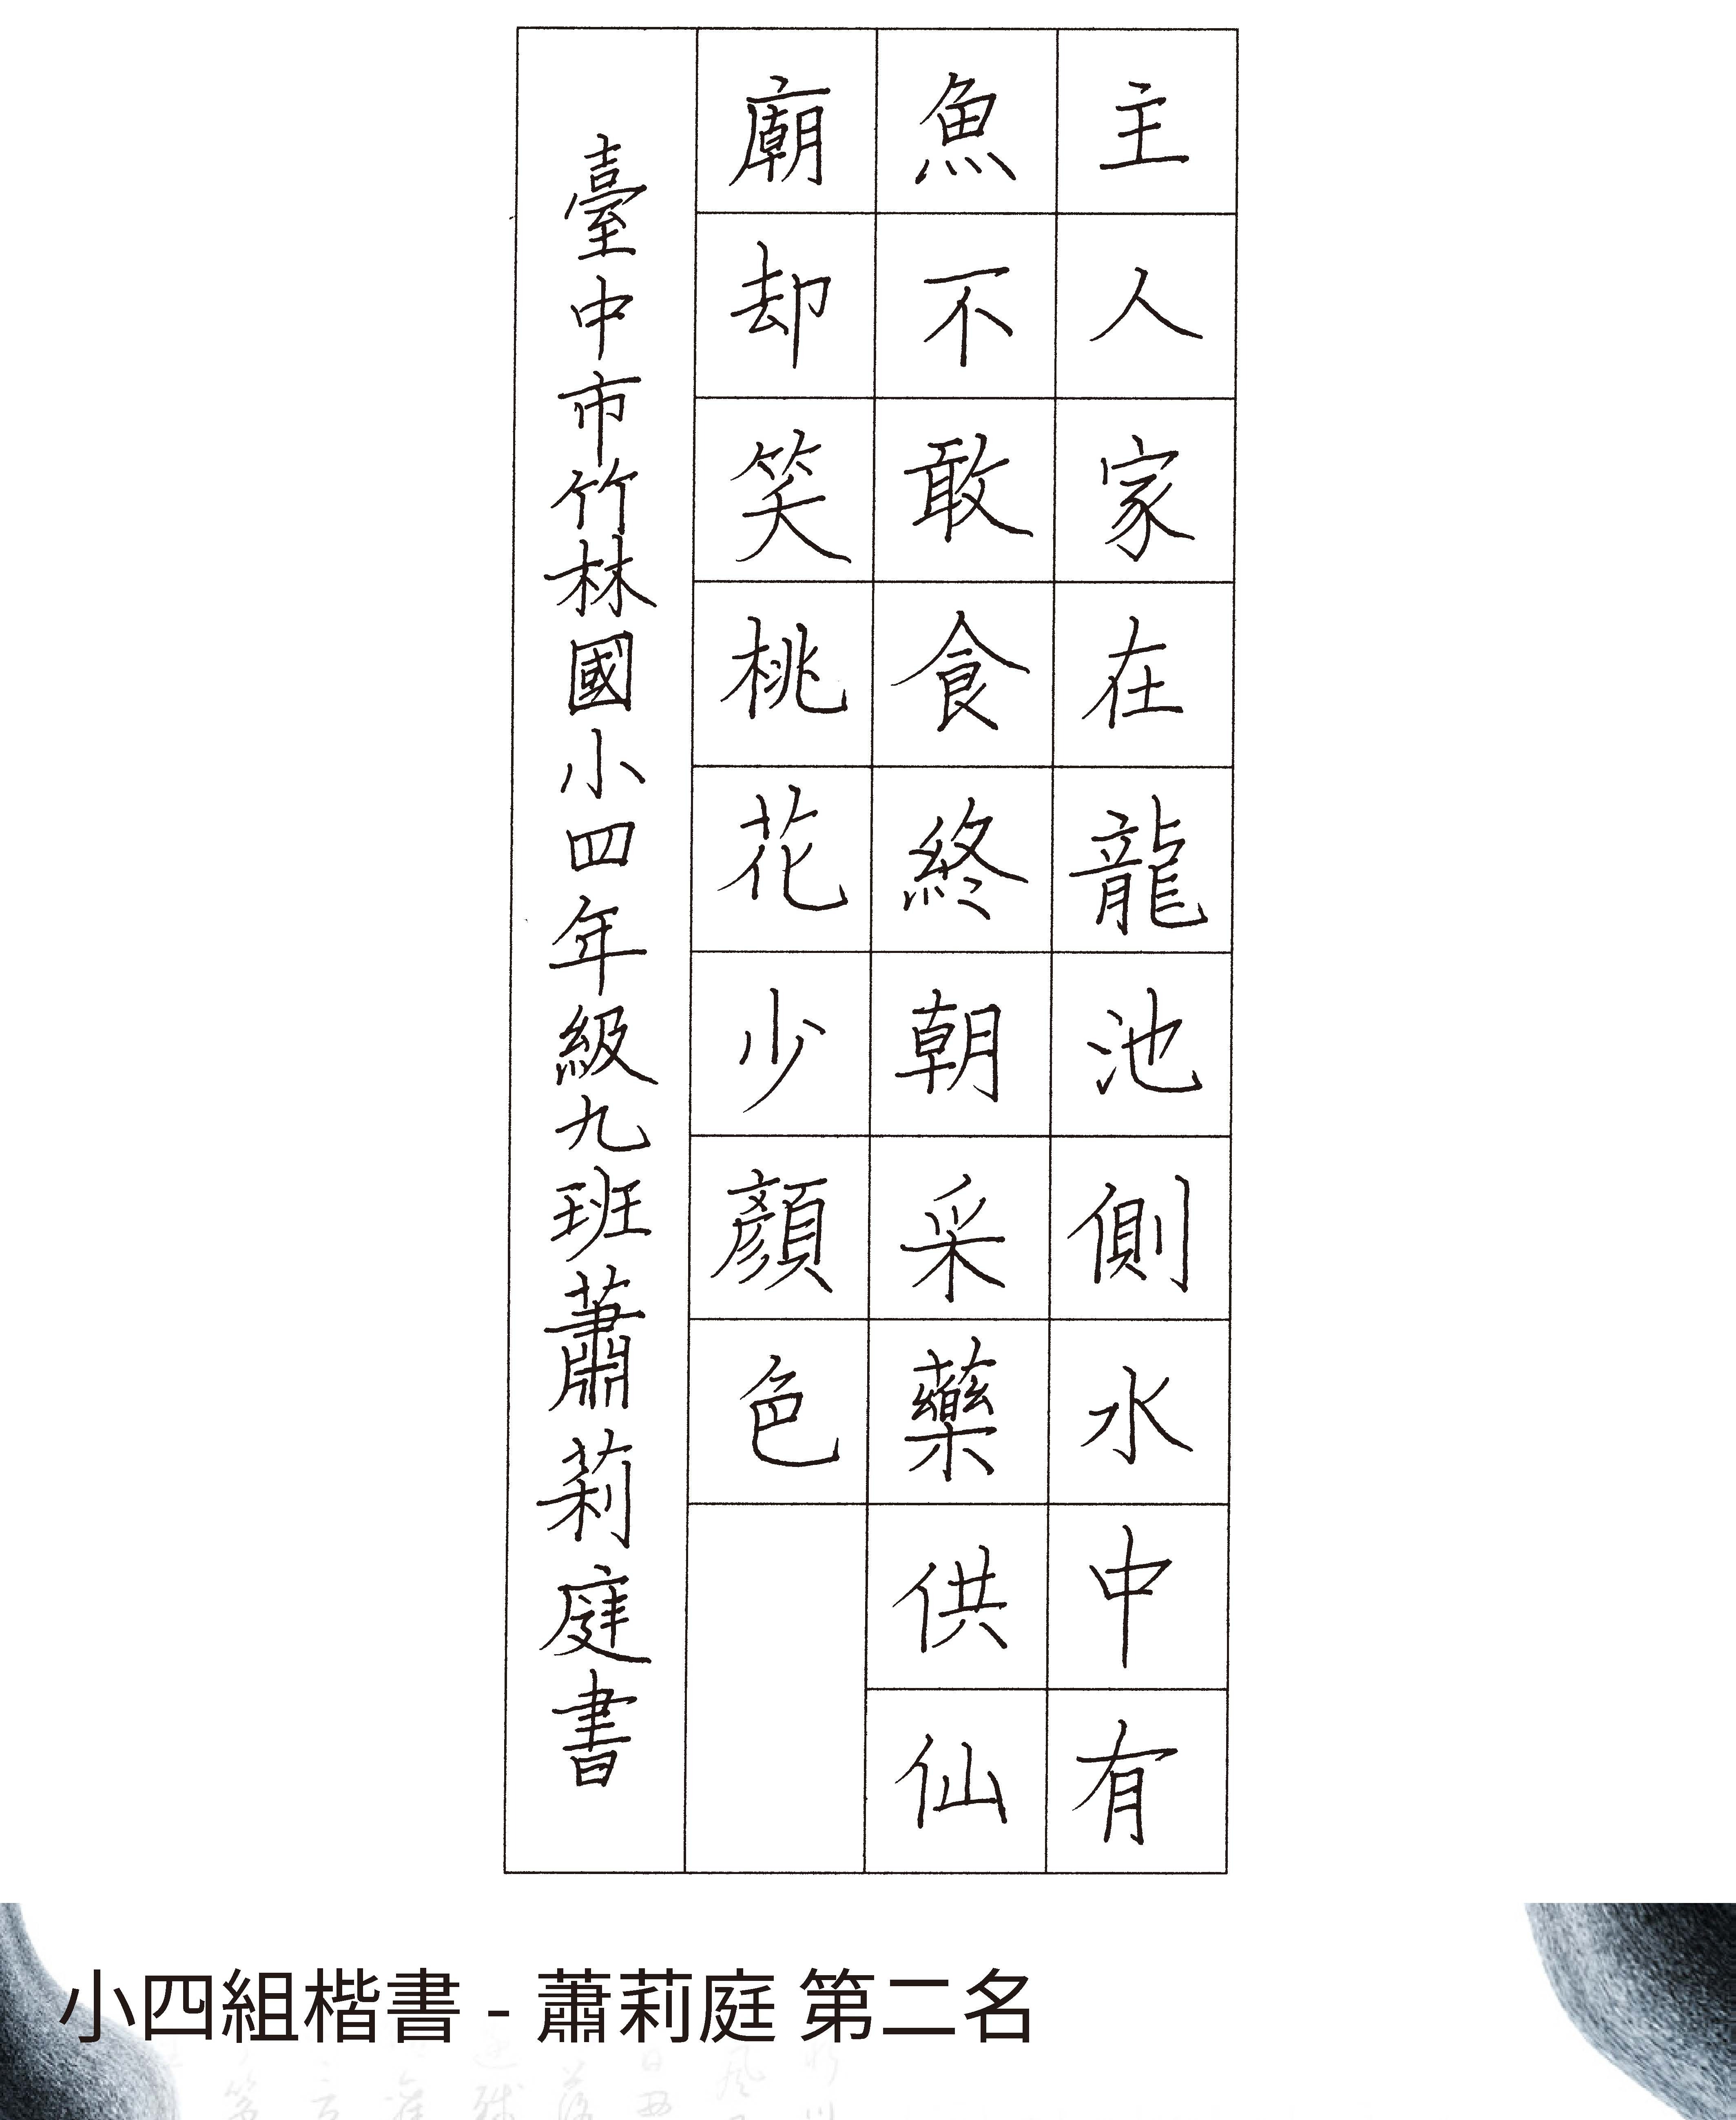 主人家在龍池側水中有
魚不敢食終朝采藥供仙
廟却笑桃花少顏色
臺中市竹林國小四年級九班蕭莉庭書
小四組楷書 - 蕭莉庭 第二名